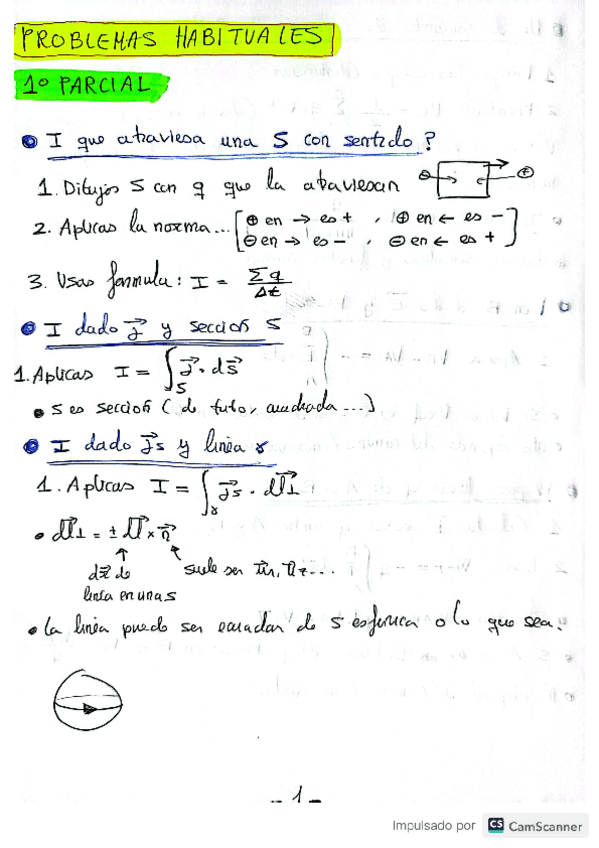 PROBLEMAS HABITUALES
1º PARCIAL
I que atraviesa una S con sentido?
1. Dibujas S con q que la atraviesan
⊖ ⊕
2. Aplicas la norma... [⊕ en → es + , ⊕ en ← es -
⊖ en → es - , ⊖ en ← es +]
3. Usas formula: I = Σq / Δt
I dado j⃗ y sección S
1. Aplicas I = ∫_S j⃗ · dS⃗
S es sección (de tubo, cuadrada ...)
I dado j⃗s y linea γ
1. Aplicas I = ∫_γ j⃗s · dl⃗⊥
dl⃗⊥ = ± dl⃗ × n⃗
de
suele ser
linea en una S
La linea puede ser ecuador de S esferica o lo que sea.
- 1 -
Impulsado por CS CamScanner